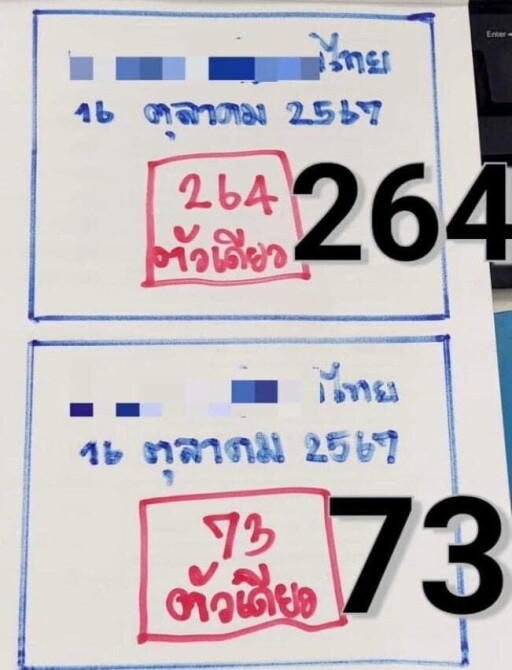 Enter
ไทย
16 ตุลาคม 2567
264
ตัวเดียว
264
ไทย
16 ตุลาคม 2567
73
ตัวเดียว
73